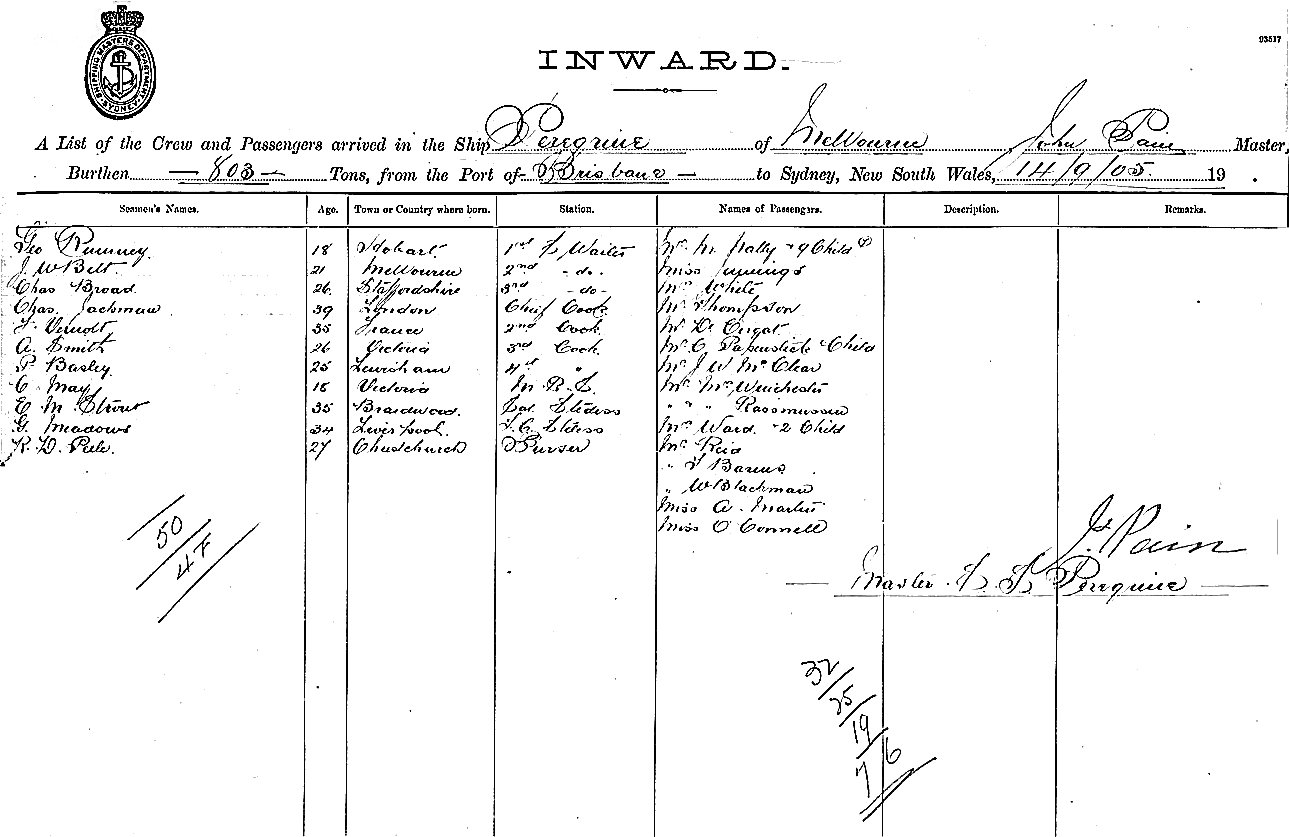 SHIPPING MASTERS DEPARTMENT SYDNEY
93517
INWARD.
A List of the Crew and Passengers arrived in the Ship Peregrine of Melbourne John Pain Master,
Burthen 803 Tons, from the Port of Brisbane to Sydney, New South Wales, 14/9/05. 19 .
Seamen's Names. Age. Town or Country where born. Station. Names of Passengers. Description. Remarks.
Geo Rumney 18 Hobart 1st S Waiter Child
J. W Belt 21 Melbourne 2nd - do - Miss Jennings
Chas Broad 26 Staffordshire 3rd - do - White
Chas Jackman 39 London Chief Cook Mr Thompson
35 France 2nd Cook
A. Smith 26 Victoria 3rd Cook Child
P. Basley 25 Lewisham 4th " Mr J W McClear
C. May 18 Victoria M. R. S. Winchester
E M 35 Braidwood. " " " Rassmussen
G. Meadows 34 Liverpool. Ward - 2 Child
27 Chuschurch Purser Mr Reid
" Barnes
" W Blackman
Miss A. Martin
Miss O'Connell
50
47
J. Pain
Master S. S. Peregrine
32
25
19
76